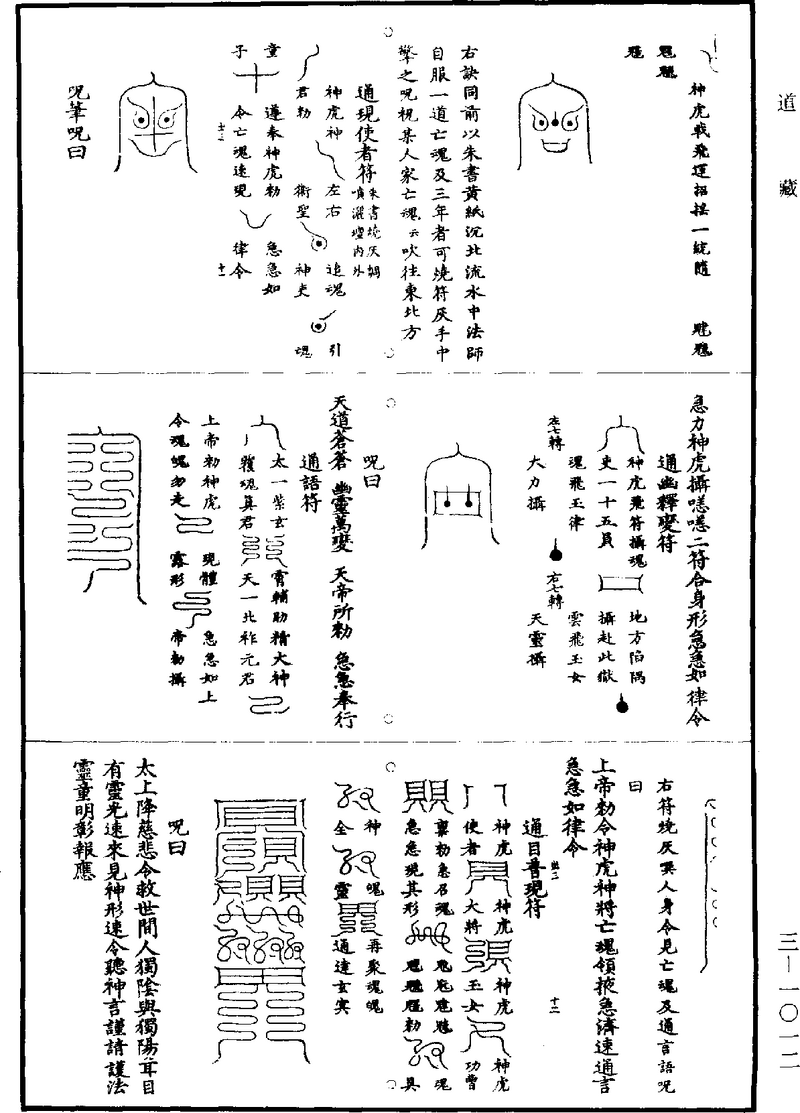 道藏
神虎戰飛運招接一統隨
右訣同前以朱書黃紙沉北流水中法師
日服一道亡魂及三年者可燒符灰手中
擎之呪祝某人家亡魂云吹往東北方
通現使者符
朱書燒灰調
噴灑壇內外
神虎神
左右
追魂
引
君勑
衛聖
神吏
魂
童
遵奉神虎勑
急急如
子
令亡魂速現
律令
呪筆呪曰
急力神虎攝嗯嗯二符合身形急急如律令
通幽釋變符
神虎飛符攝魂
地方陷隅
吏一十五員
攝赴此獄
左七轉
魂飛玉律
右七轉
雲飛玉女
大力攝
天靈攝
呪曰
天道蒼蒼 幽靈萬變 天帝所勑 急急奉行
通語符
太一紫玄
霄輔助精大神
護魂真君
天一北祚元君
上帝勑神虎
現體
急急如上
令魂魄勿走
露形
帝勑攝
右符燒灰噀人身令見亡魂及通言語呪
曰
上帝勑令神虎神將亡魂領掖急濟速通言
急急如律令
通目普現符
神虎
神虎
神虎
神虎
使者
大將
玉女
功曹
稟勑急召魂
魂
急急現其形
具
神
魂
再聚魂魄
全
靈
通達玄冥
十二
呪曰
太上降慈悲令救世間人獨陰與獨陽耳目
有靈光速來見神形速令聽神言謹請護法
靈童明彰報應
三—一〇一二